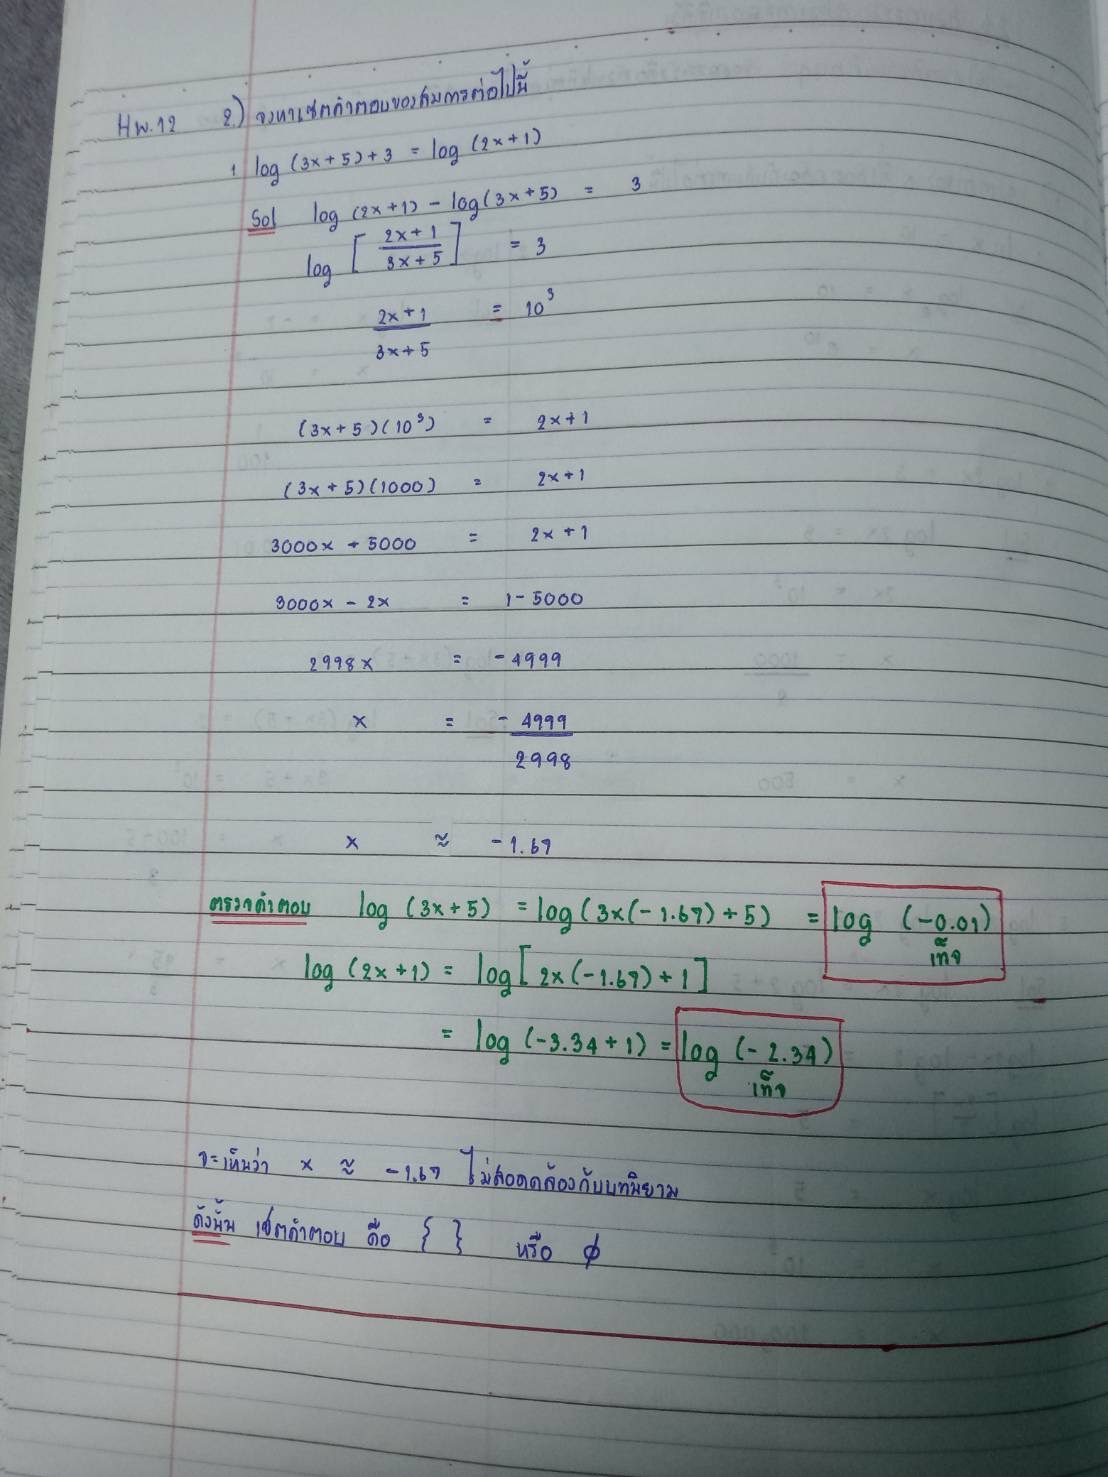 HW.12 2.) จงหาเซตคำตอบของสมการต่อไปนี้
1. log (3x+5)+3 = log (2x+1)
Sol log (2x+1) - log(3x+5) = 3
log [ 2x+1 / 3x+5 ] = 3
2x+1 / 3x+5 = 10³
(3x+5)(10³) = 2x+1
(3x+5)(1000) = 2x+1
3000x + 5000 = 2x+1
3000x - 2x = 1-5000
2998x = -4999
x = - 4999 / 2998
x ≈ -1.67
ตรวจคำตอบ log (3x+5) = log(3x(-1.67)+5) = log (-0.01)
เท็จ
log (2x+1) = log[2x(-1.67)+1]
= log (-3.34+1) = log (-2.34)
เท็จ
จะเห็นว่า x ≈ -1.67 ไม่สอดคล้องกับบทนิยาม
ดังนั้น เซตคำตอบ คือ { } หรือ ϕ